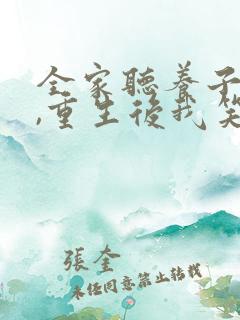 全家聽養子
,重生後我笑
張奎
未經同意禁止轉載